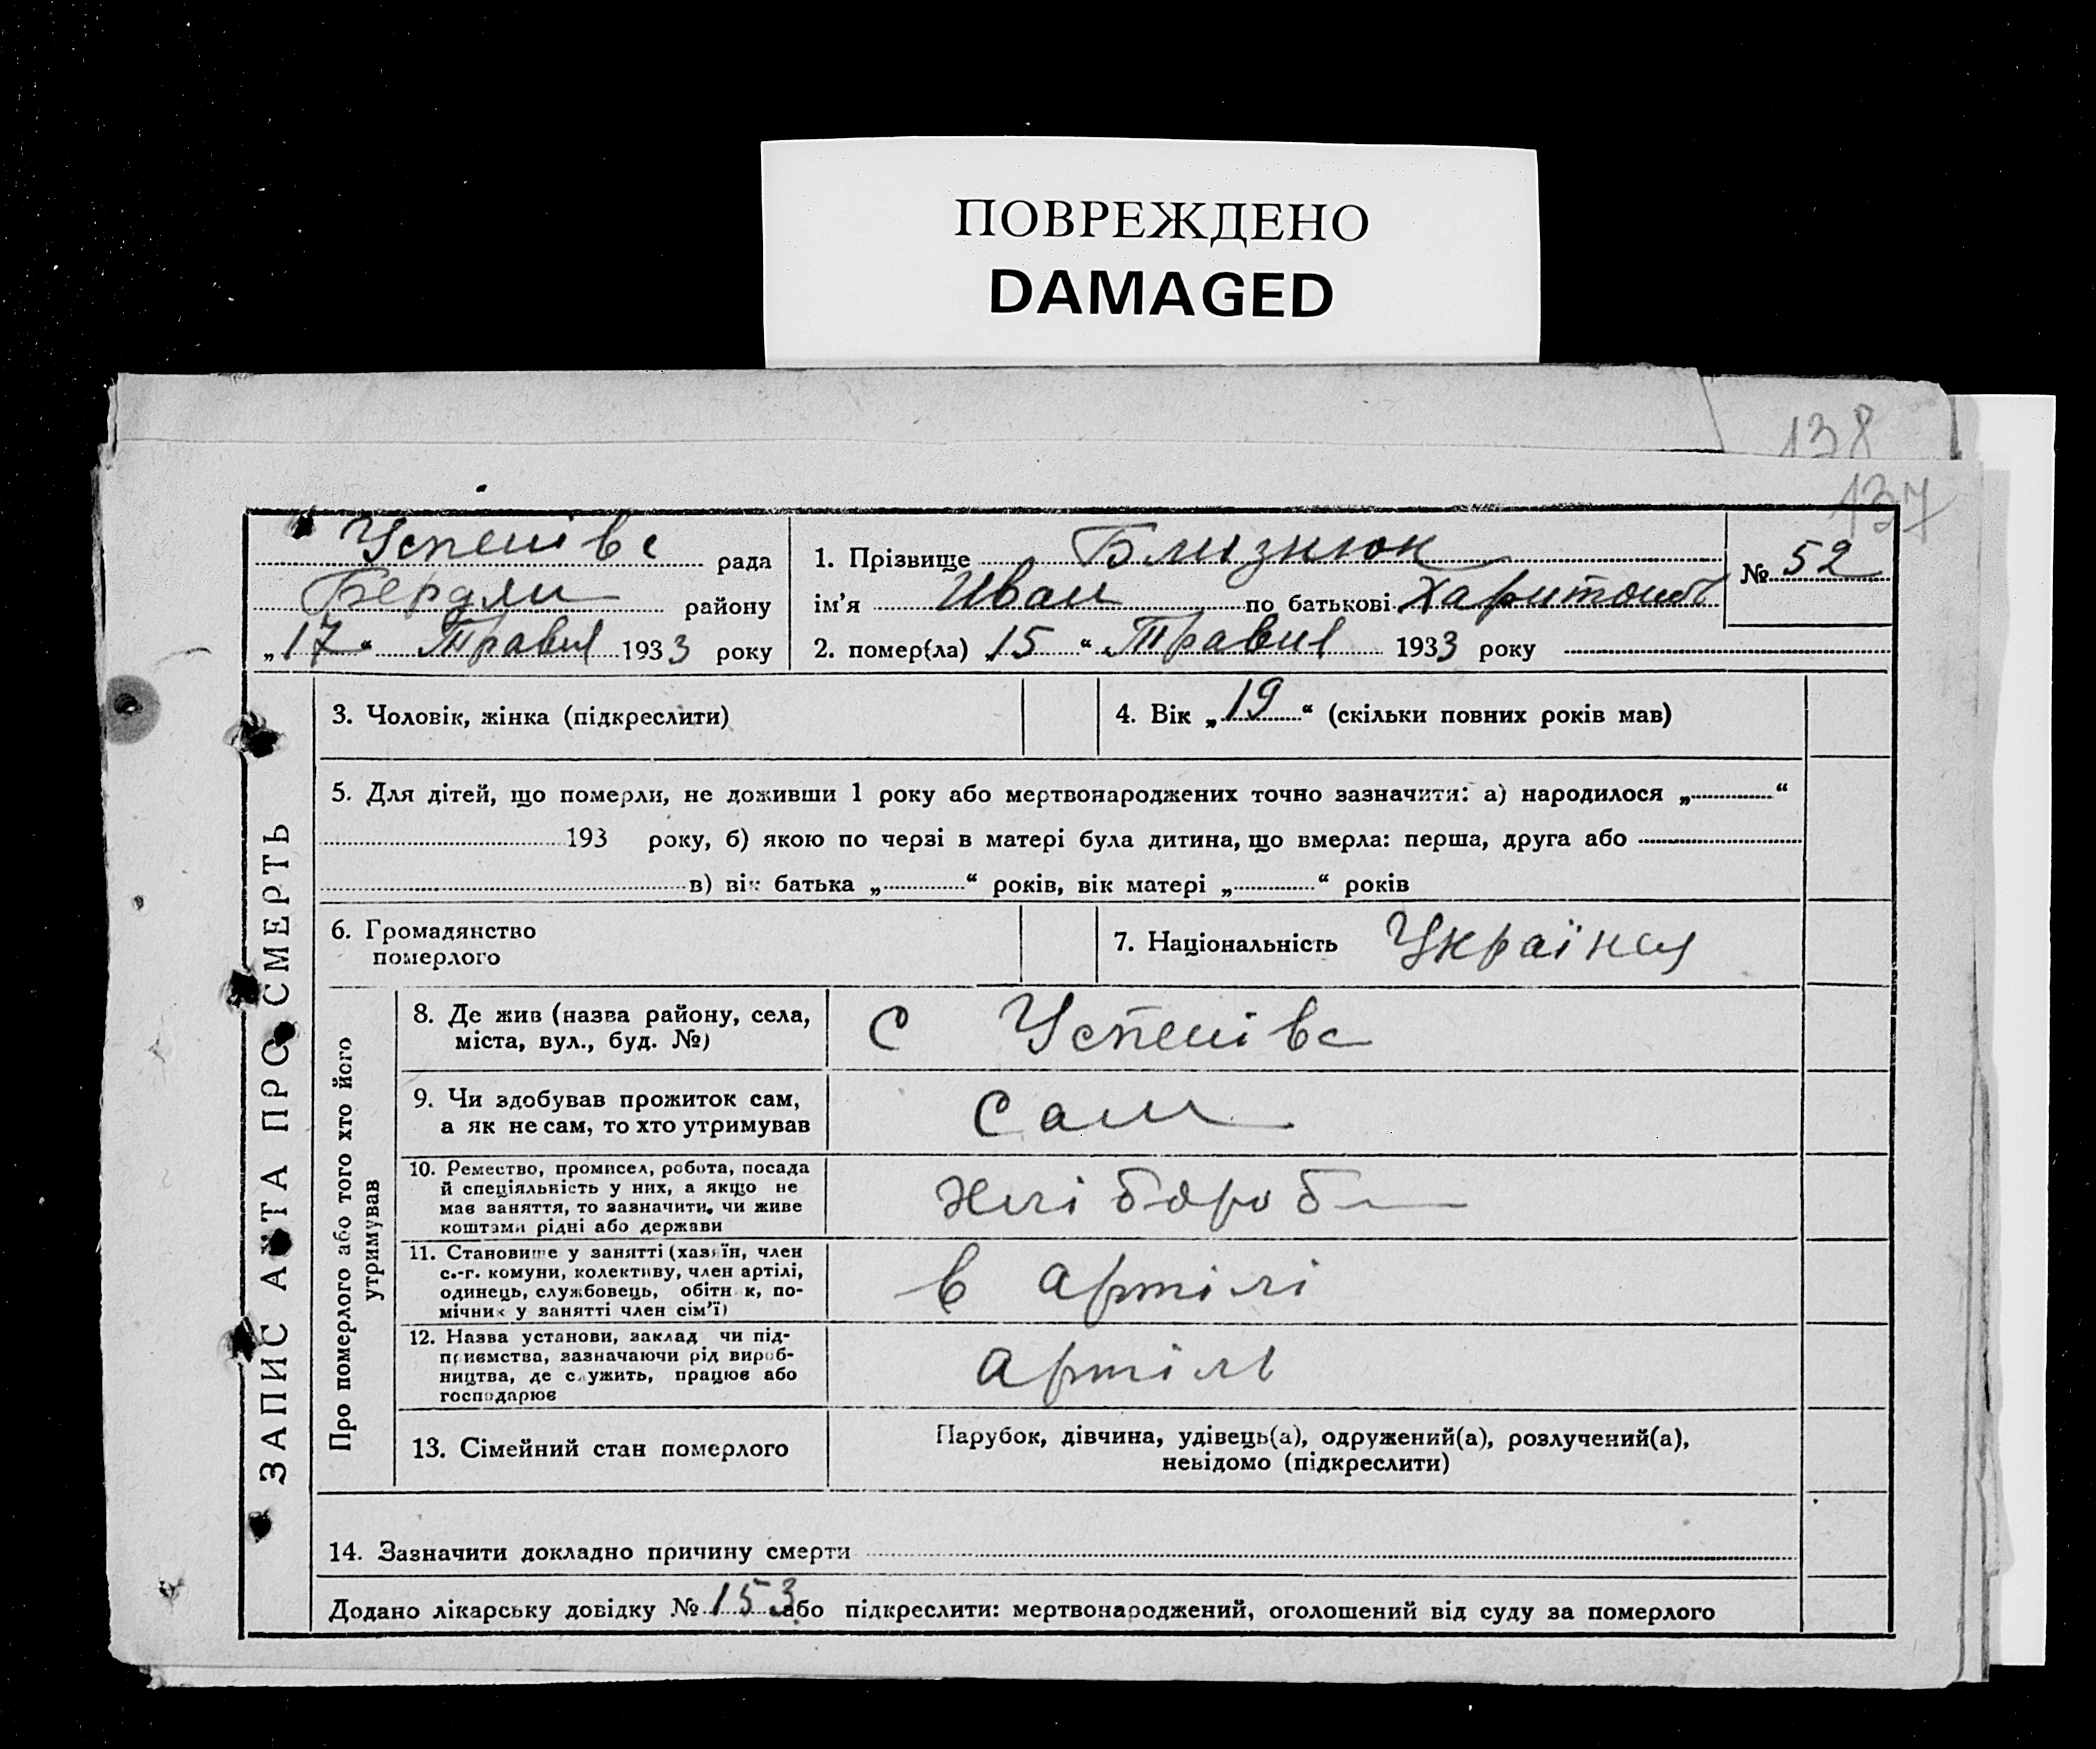 ПОВРЕЖДЕНО
DAMAGED
138
137
Успенівс рада
Бердян району
„17“ Травня 1933 року
1. Прізвище Близнюк
ім’я Иван по батькові Харитонов
2. помер(ла) „15“ Травня 1933 року
№ 52
ЗАПИС АКТА ПРО СМЕРТЬ
3. Чоловік, жінка (підкреслити)
4. Вік „19“ (скільки повних років мав)
5. Для дітей, що померли, не доживши 1 року або мертвонароджених точно зазначити: а) народилося „ “
193 року, б) якою по черзі в матері була дитина, що вмерла: перша, друга або
в) вік батька „ “ років, вік матері „ “ років
6. Громадянство
померлого
7. Національність Україн
Про померлого або того хто його
утримував
8. Де жив (назва району, села,
міста, вул., буд. №)
с Успенівс
9. Чи здобував прожиток сам,
а як не сам, то хто утримував
Сам
10. Ремество, промисел, робота, посада
й спеціяльність у них, а якщо не
має заняття, то зазначити, чи живе
коштами рідні або держави
Хлібороб
11. Становище у занятті (хазяїн, член
с.-г. комуни, колективу, член артілі,
одинець, службовець, обітник, по-
мічник у занятті член сім’ї)
в артілі
12. Назва установи, заклад чи під-
приємства, зазначаючи рід вироб-
ництва, де служить, працює або
господарює
артіль
13. Сімейний стан померлого
Парубок, дівчина, удівець(а), одружений(а), розлучений(а),
невідомо (підкреслити)
14. Зазначити докладно причину смерти
Додано лікарську довідку № 153 або підкреслити: мертвонароджений, оголошений від суду за померлого